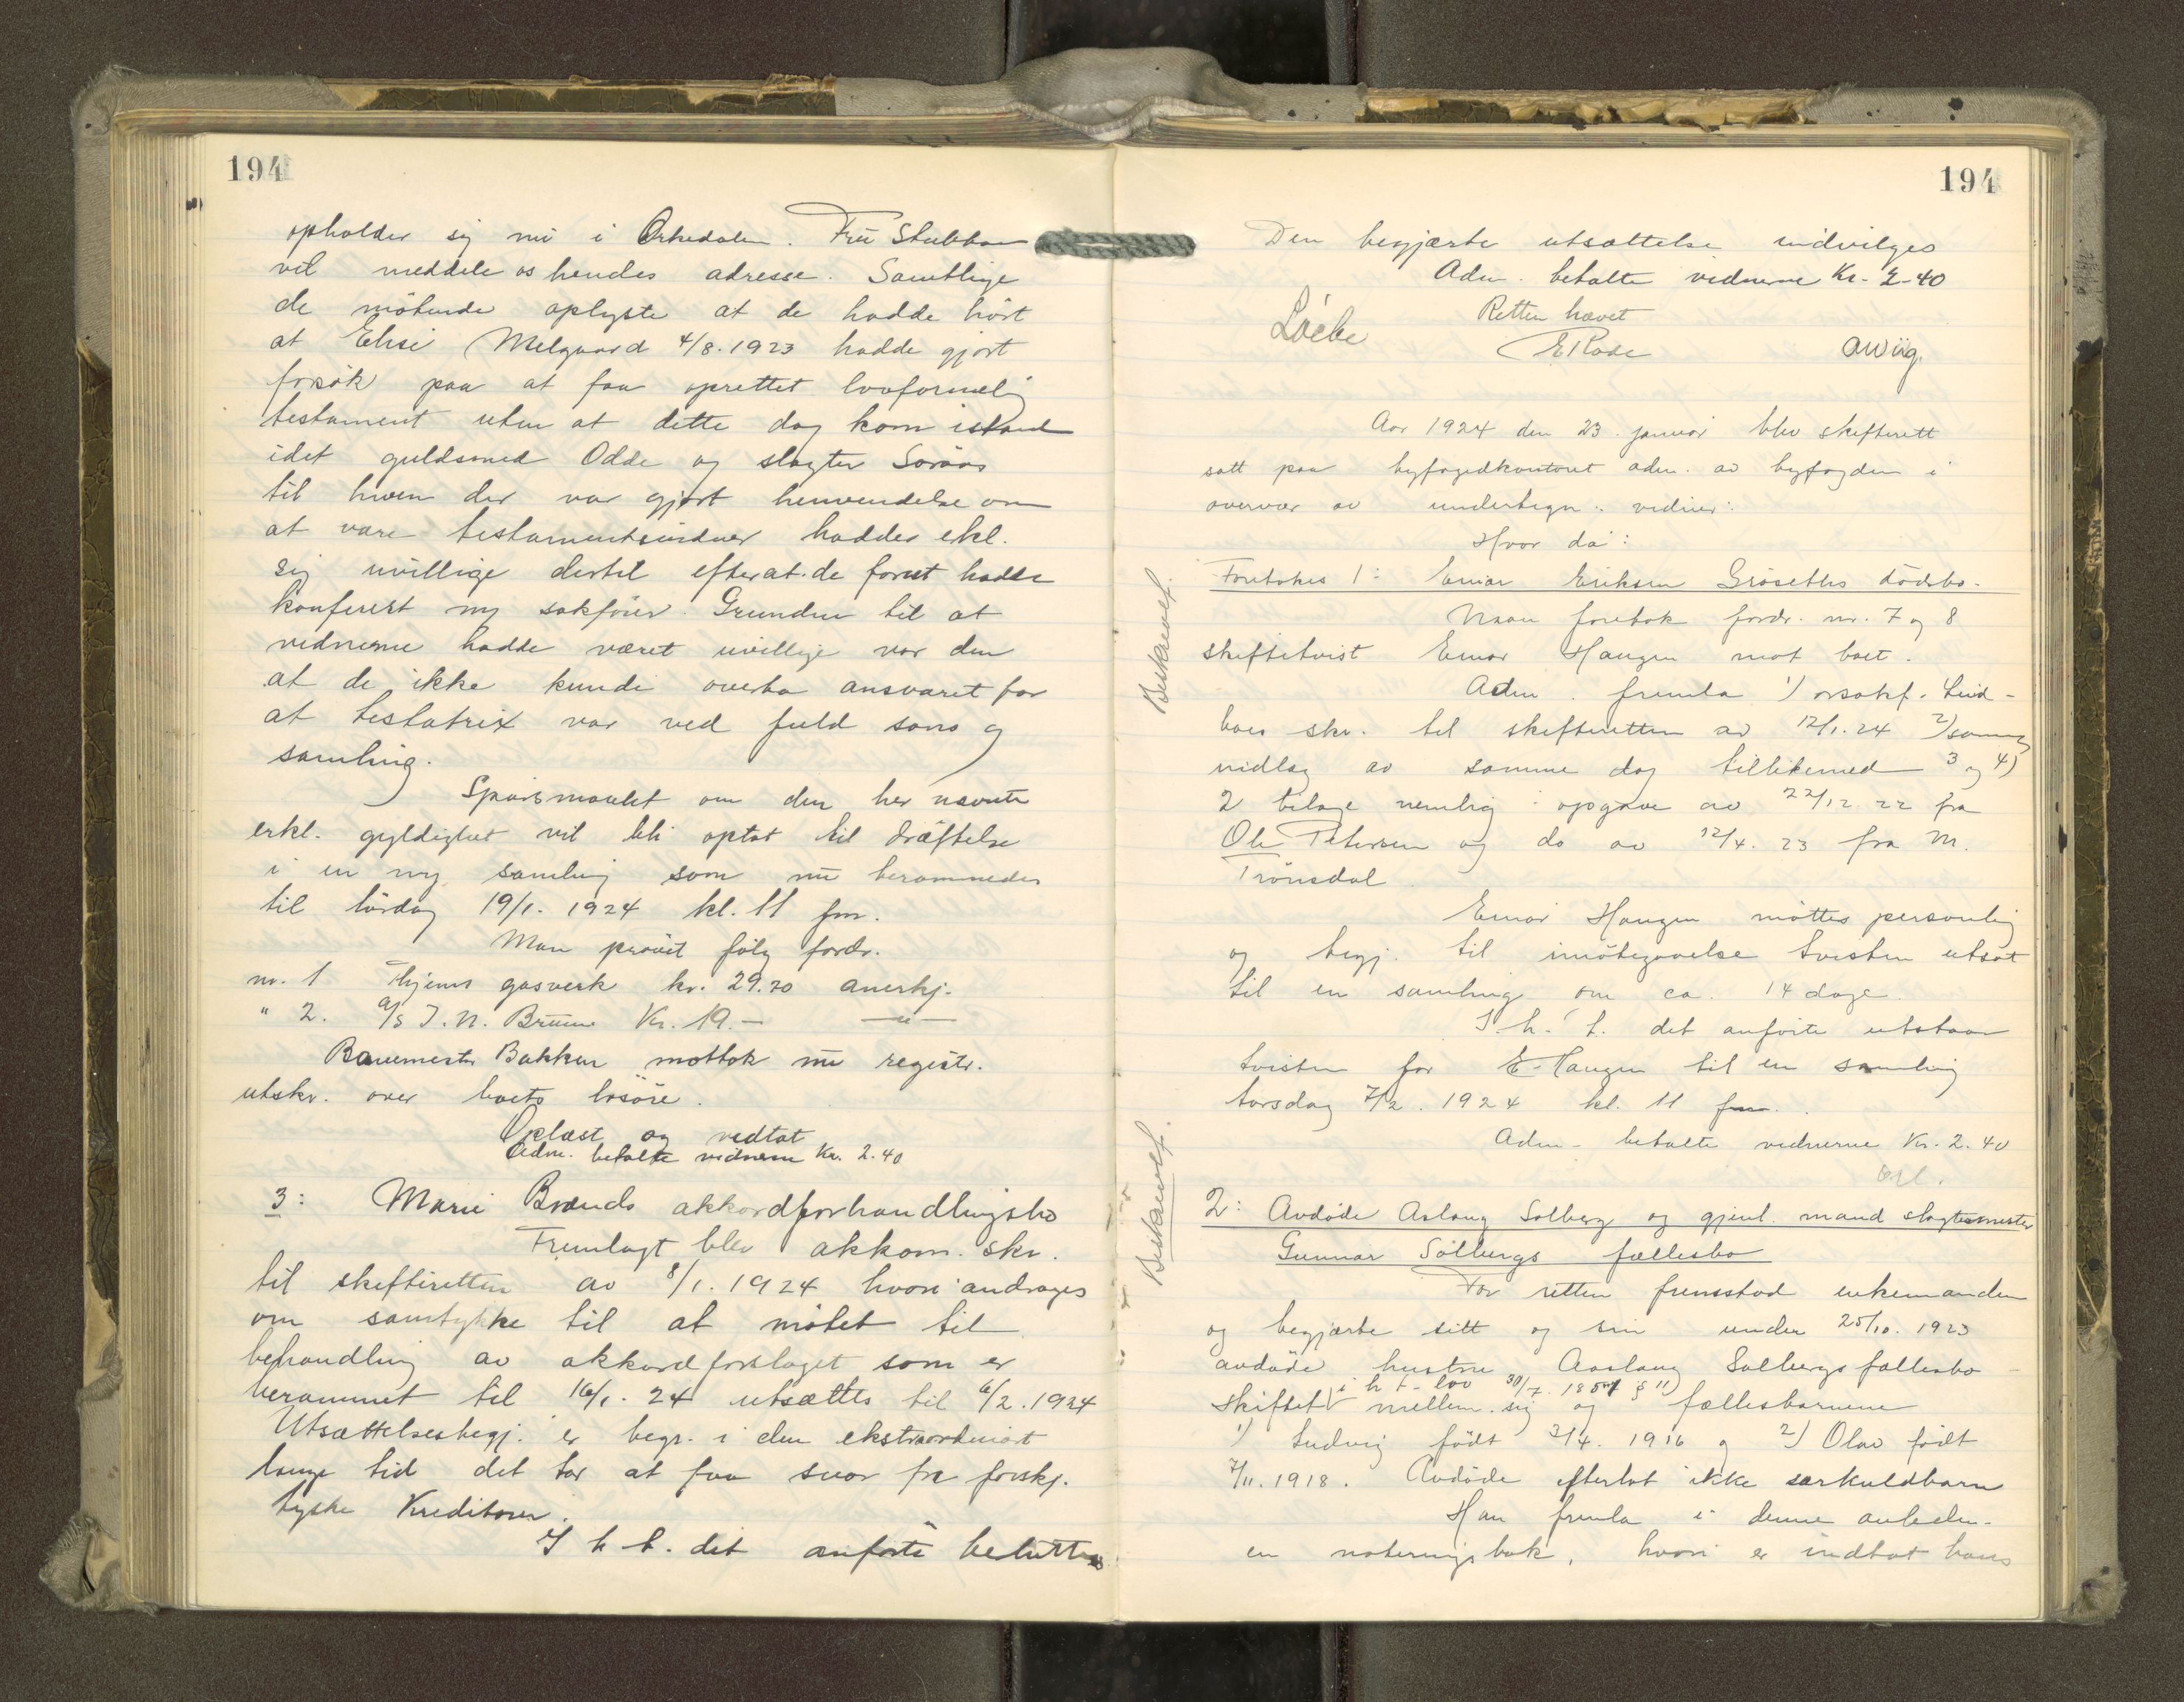 194
opholder sig nu i Orkedalen. Fru Stubban
vil meddele os hendes adresse. Samtlige
de møtende oplyste at de hadde hørt
at Elise Melgaard 4/8. 1923 hadde gjort
forsøk paa at faa oprettet lovformelig
testament uten at dette dog kom istand
idet guldsmed Odde og slagter Soraas
til hvem der var gjort henvendelse om
at være testamentsvidner hadde erkl.
sig uvillige dertil efterat de forut hadde
konferert m/ sakfører. Grunden til at
vidnerne hadde været uvillige var den
at de ikke kunde overta ansvaret for
at testatrix var ved fuld sans og
samling.
Spørsmaalet om den her nævnte
erkl. gyldighet vil bli optat til drøftelse
i en ny samling som nu berammedes
til lørdag 19/1. 1924 kl. 11 fm.
Man prøvet følg fordr.
nr. 1 Thjems gasverk kr. 29.20 anerkj.
" 2. A/S I. N. Bruun Kr. 19.- —"—
Banemester Bakken mottok nu registr.
utskr. over boets løsøre.
Oplæst og vedtat
Adm. betalte vidnerne Kr. 2.40
3: Marie Brænds akkordforhandlingsbo
Fremlagt blev akkom. skr.
til skifteretten av 8/1. 1924 hvori andrages
om samtykke til at møtet til
behandling av akkordforslaget som er
berammet til 16/1. 24 utsættes til 6/2. 1924
Utsættelsesbegj. er begr. i den ekstraordinært
lange tid det tar at faa svar fra forskj.
tyske Kreditorer.
I h t. det anførte besluttes
194
Den begjærte utsættelse indvilges
Adm. betalte vidnerne Kr. 2-40
Retten hævet
ERode
AWiig.
Aar 1924 den 23. januar blev skifterett
satt paa byfogedkontoret adm. av byfogden i
overvær av undertegn. vidner:
Hvor da:
Foretokes 1: Einar Eriksen Grøseths dødsbo.
Man foretok fordr. nr. 7 og 8
skiftetvist Einar Haugen mot boet.
Adm. fremla 1) orsakf. Lind-
boes skr. til skifteretten av 12/1. 24 2) sammes
indlæg av samme dag tillikemed 3 og 4)
2 bilage nemlig: opgave av 22/12. 22 fra
Ole Petersen og do av 12/4. 23 fra M.
Trønsdal
Einar Haugen møttes personlig
og begj. til imøtegaaelse tvisten utsat
til en samling om ca. 14 dage.
I. h. t. det anførte utstaar
tvisten for E. Haugen til en samling
torsdag 7/2. 1924 kl. 11 fm.
Adm. betalte vidnerne Kr. 2.40
2: Avdøde Aslaug Solberg og gjenl. mand slagtermester
Gunnar Solbergs fællesbo
For retten fremstod enkemanden
og begjærte sitt og sin under 25/10. 1923
avdøde hustru Aaslaug Solbergs fællesbo
i h t. lov 30/7. 1851 § 11
skiftet mellem sig og fællesbarnene
1) Ludvig født 2/4. 1916 og 2) Olav født
7/11. 1918. Avdøde efterlot ikke særkuldbarn
Han fremla i denne anledn.
en noteringsbok, hvori er indtat hans
Beskrevet.
Beskrevet.